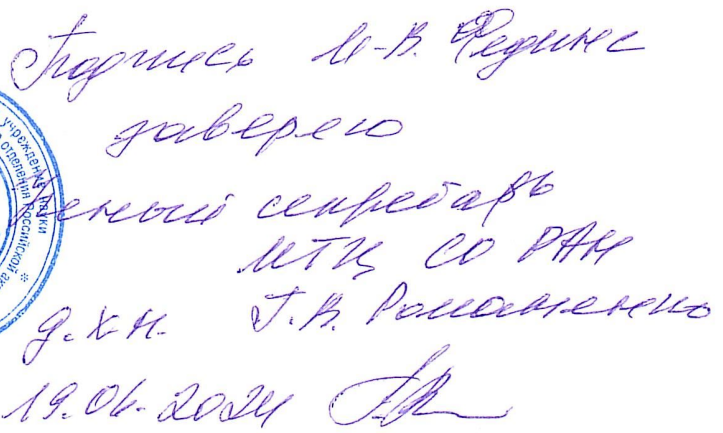 Подпись М.В. Федина
заверяю
Ученый секретарь
МТЦ СО РАН
д.х.н. Г.В. Романенко
19.06.2024
учреждение науки
отделения Российской ака